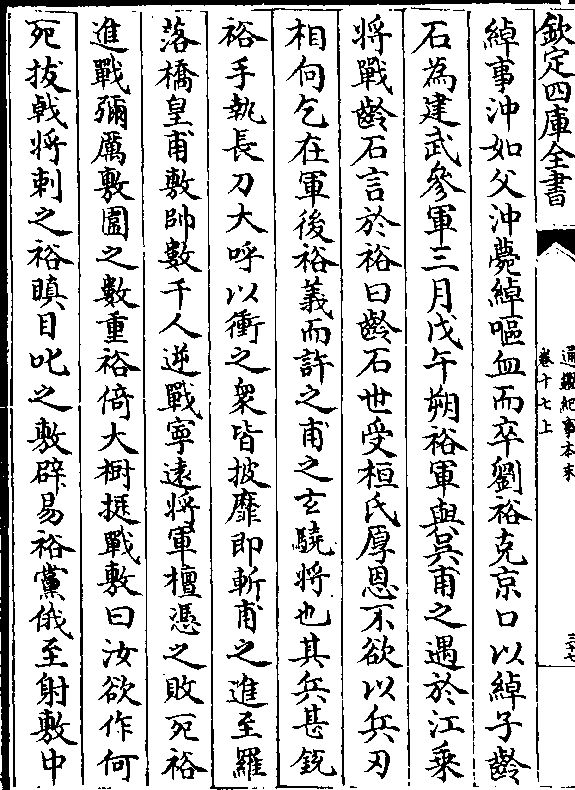 欽定四庫全書
通鑑紀事本末
卷十七上
三十七
綽事沖如父沖薨綽嘔血而卒劉裕克京口以綽子齡
石為建武參軍三月戊午朔裕軍與吳甫之遇於江乘
将戰齡石言於裕曰齡石世受桓氏厚恩不欲以兵刃
相向乞在軍後裕義而許之甫之玄驍将也其兵甚銳
裕手執長刀大呼以衝之衆皆披靡即斬甫之進至羅
落橋皇甫敷帥數千人逆戰寧遠将軍檀憑之敗死裕
進戰彌厲敷圍之數重裕倚大樹挺戰敷曰汝欲作何
死拔戟将刺之裕瞋目叱之敷辟易裕黨俄至射敷中